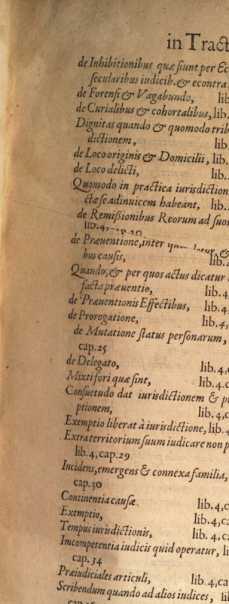 in Tract
de Inhibitionibus quæ fiunt per Ec
secularibus iudicib. & econtra
de Forensi & Vagabundo, lib
de Curialibus & cohortalibus, lib.
Dignitas quando & quomodo trib
dictionem, lib.
de Loco originis & Domicilii, lib.
de Loco delicti, lib.
Quomodo in practica iurisdiction
ctæ se adinuicem habeant, lib.
de Remißionibus Reorum ad suos
lib.4,
de Præuentione, inter
bus causis, lib.4
Quando, & per quos actus dicatur
facta præuentio, lib.4,
de Præuentionis Effectibus, lib.4,
de Prorogatione, lib.4,
de Mutatione status personarum,
cap.25
de Delegato, lib.4,c
Mixti fori quæ sint, lib.4.c
Consuetudo dat iurisdictionem & p
ptionem, lib.4,c
Exemptio liberat à iurisdictione, lib.4
Extra territorium suum iudicare non p
lib.4,cap.29
Incidens, emergens & connexa familia,
cap.30
Continentia causæ. lib.4,c
Exemptio, lib.4,ca
Tempus iurisdictionis, lib.4,ca
Incompetentia iudicis quid operatur, li
cap.34
Præiudiciales articuli, lib.4,ca
Scribendum quando ad alios iudices, li